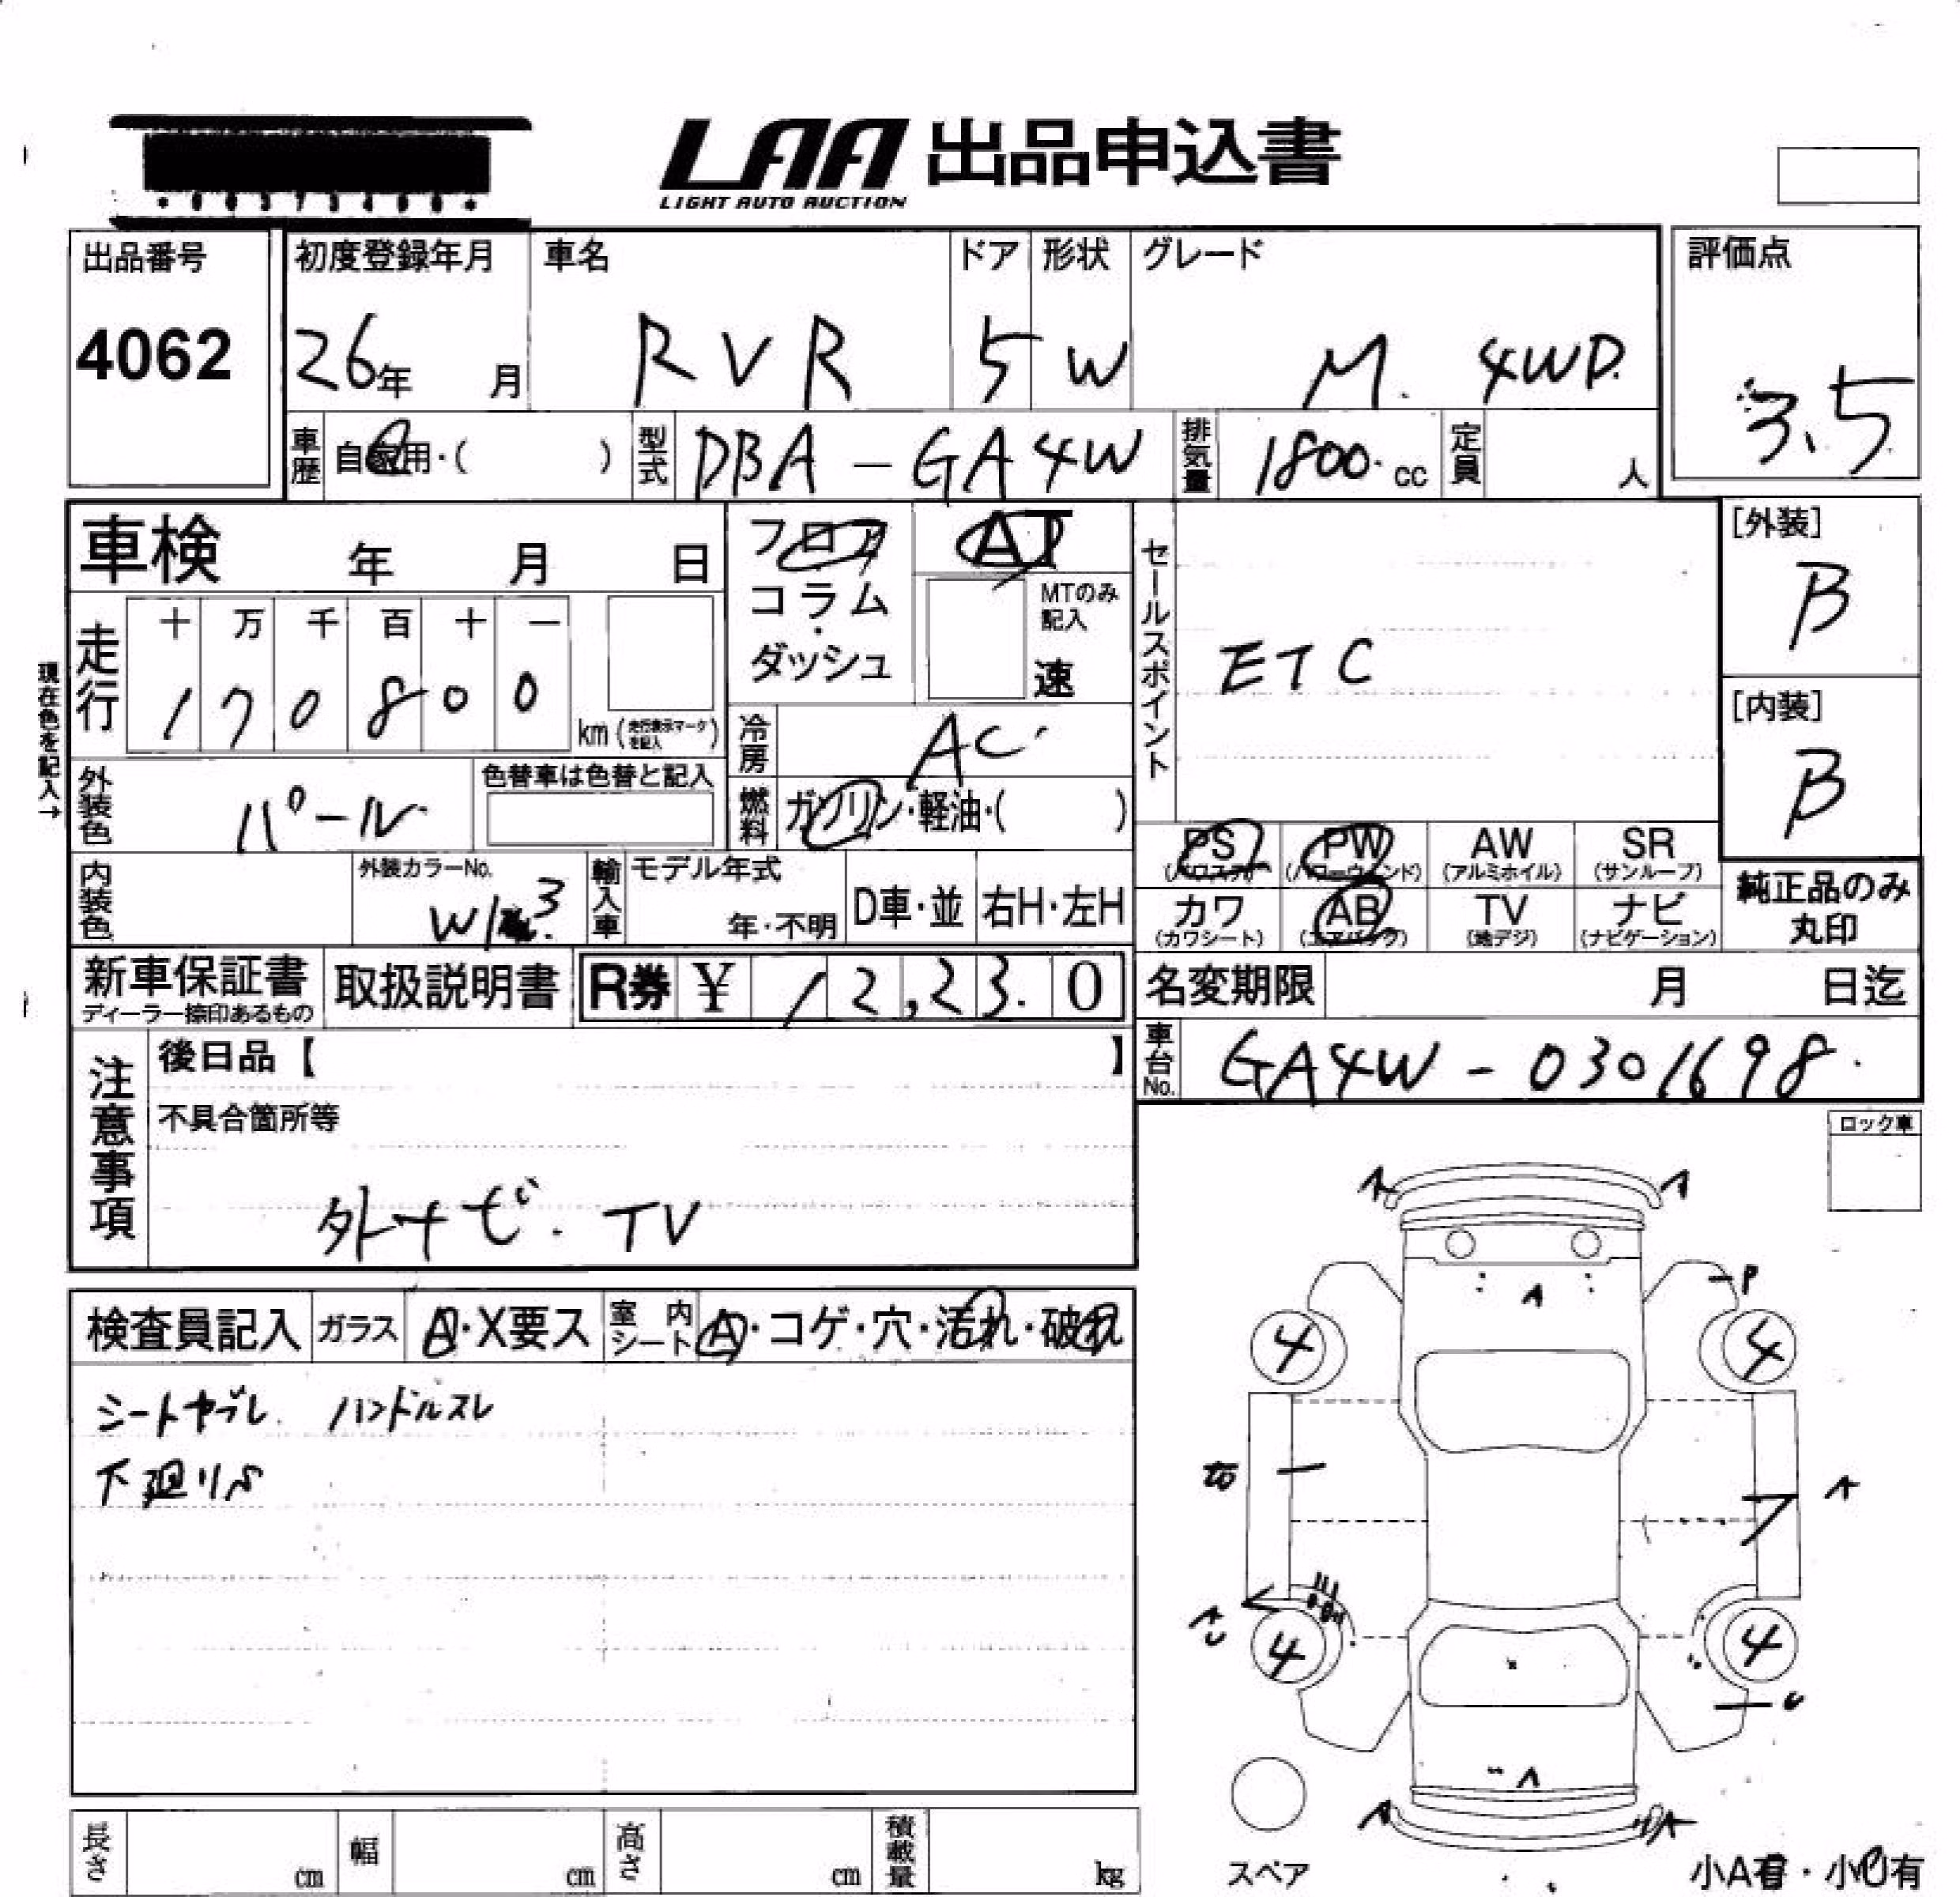 LAA 出品申込書
LIGHT AUTO AUCTION
出品番号 初度登録年月 車名 ドア 形状 グレード 評価点
4062 26年 月 RVR 5 W M. 4WD 3.5
車歴 自家用・( ) 型式 DBA-GA4W 排気量 1800. cc 定員 人
車検 年 月 日
フロア
コラム
・
ダッシュ
AT
MTのみ
記入
速
セールスポイント
ETC
[外装]
B
[内装]
B
現在色を記入→
走行 十 万 千 百 十 一
1 7 0 8 0 0 km (走行表示マークを記入)
冷房 AC
外装色 パール 色替車は色替と記入
燃料 ガソリン・軽油・( )
PS PW AW SR
(パワステ) (パワーウィンド) (アルミホイル) (サンルーフ)
カワ AB TV ナビ
(カワシート) (エアバック) (地デジ) (ナビゲーション)
純正品のみ
丸印
内装色 外装カラーNo. 輸入車 モデル年式
年・不明 D車・並 右H・左H
新車保証書 取扱説明書 R券 ¥ 12,23.0
ディーラー捺印あるもの
名変期限 月 日迄
車台No. GA4W-0301698
注意事項
後日品【 】
不具合箇所等
外ナビ. TV
ロック車
検査員記入 ガラス A・X要ス 室内シート A・コゲ・穴・汚れ・破れ
シートヤブレ ハンドルスレ
A A
A P
4 4
A
4 4
A
A A
スペア
小A有・小U有
長さ cm 幅 cm 高さ cm 積載量 kg